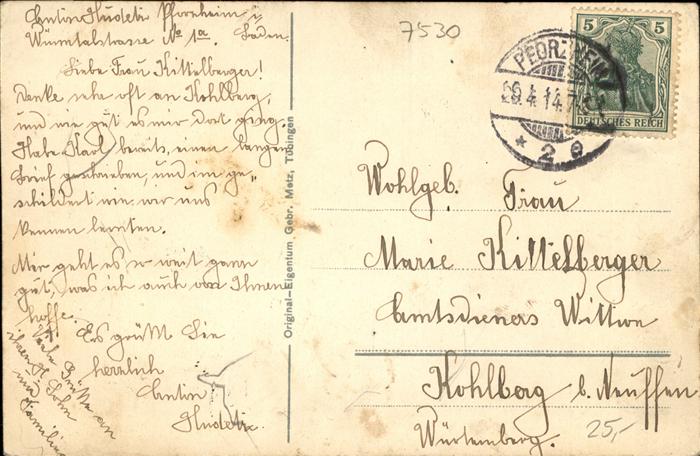 Anton Hudetz Pforzheim i.
Würmtalstrasse No 1a. Baden.
Liebe Frau Kittelberger!
Denke sehr oft an Kohlberg,
und wie gut es mir dort ging.
Habe Karl bereits einen langen
Brief geschrieben, und im ge-
schildert wie wir uns
kennen lernten.
Mir geht es so weit ganz
gut, was ich auch von Ihnen
hoffe.
Es grüßt Sie
herzlich
Anton
Hudetz.
Viele Grüße an
ihren H. Sohn
und Familie
Original-Eigentum Gebr. Metz, Tübingen
7530
5 5
DEUTSCHES REICH
PFORZHEIM
29.4.14.7
* 2 e
Wohlgeb. Frau
Marie Kittelberger
Amtsdieners Wittwe
Kohlberg b. Neuffen
Würtemberg.
25,-